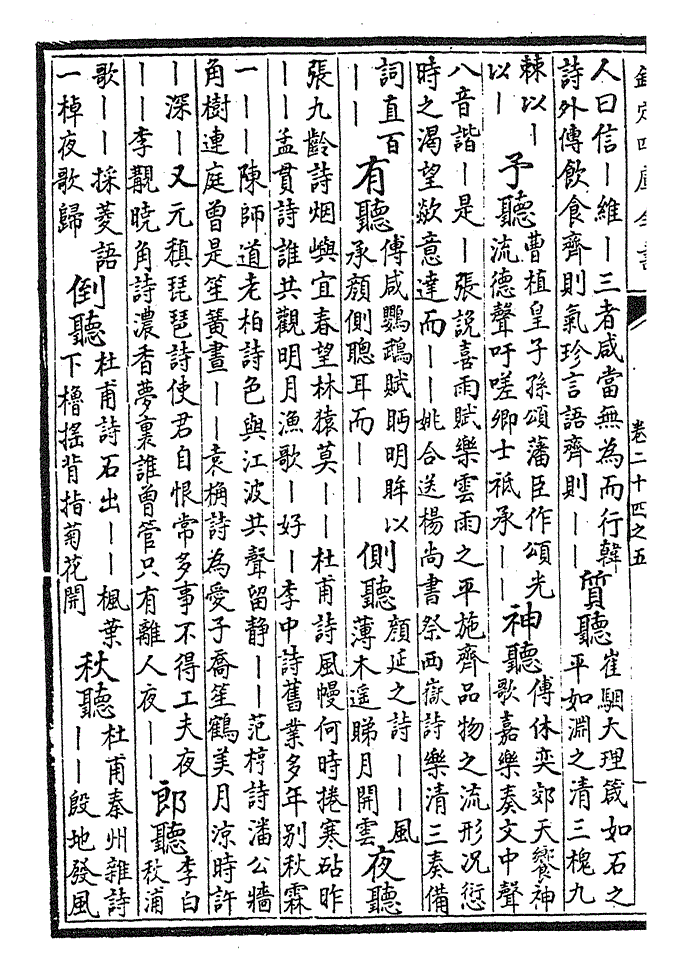 欽定四庫全書
卷二十四之五
人曰信丨維丨三者咸當無為而行韓
詩外傳飲食齊則氣珍言語齊則丨丨
質聽
崔駰大理箴如石之
平如淵之清三槐九
棘以丨
以丨
予聽
曹植皇子孫頌藩臣作頌光
流德聲吁嗟卿士祇承丨丨
神聽
傅休奕郊天饗神
歌嘉樂奏文中聲
八音諧丨是丨張說喜雨賦樂雲雨之平施齊品物之流形況愆
時之渴望欻意達而丨丨姚合送楊尚書祭西嶽詩樂清三奏備
詞直百
丨丨
有聽
傅咸鸚鵡賦眄明眸以
承顏側聰耳而丨丨
側聽
顏延之詩丨丨風
薄木遥睇月開雲
夜聽
張九齡詩烟嶼宜春望林猿莫丨丨杜甫詩風幔何時捲寒砧昨
丨丨孟貫詩誰共觀明月漁歌丨好丨李中詩舊業多年別秋霖
一丨丨陳師道老柏詩色與江波共聲留静丨丨范梈詩潘公牆
角樹連庭曾是笙簧晝丨丨袁桷詩為愛子喬笙鶴美月涼時許
丨深丨又元稹琵琶詩使君自恨常多事不得工夫夜
丨丨李覯曉角詩濃香夢裏誰曾管只有離人夜丨丨
郎聽
李白
秋浦
歌丨丨採菱語
一棹夜歌歸
倒聽
杜甫詩石出丨丨楓葉
下櫓搖背指菊花開
秋聽
杜甫秦州雜詩
丨丨殷地發風